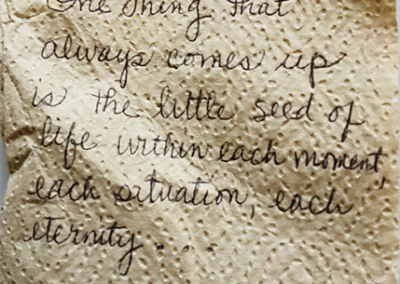 One thing that
always comes up
is the little seed of
life within each moment,
each situation, each
eternity...